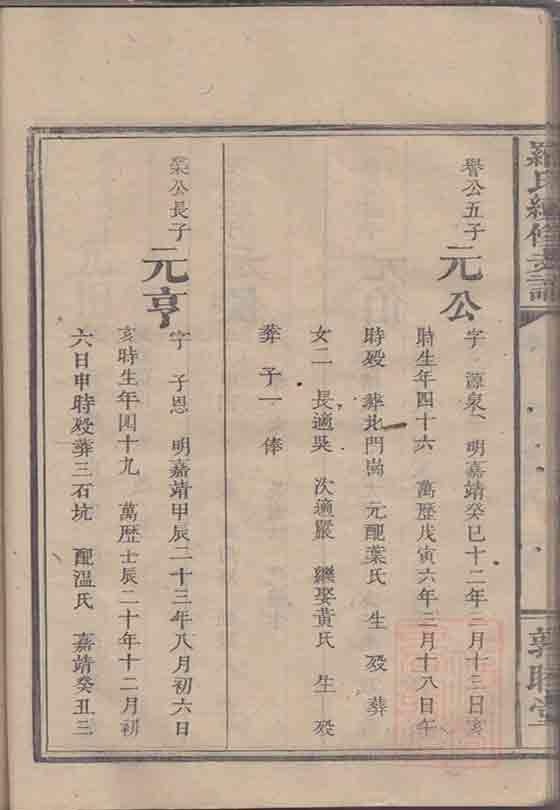 羅氏續修支譜
敦睦堂
譽公五子
元公
字 源泉 明嘉靖癸巳十二年二月十三日亥
時生年四十六 萬歷戊寅六年三月十八日午
時歿 葬北門崗 元配葉氏 生 歿 葬
女二 長適吳 次適嚴 繼娶黃氏 生 歿
葬 子一 俸
榮公長子
元亨
字 子恩 明嘉靖甲辰二十三年八月初六日
亥時生年四十九 萬歷壬辰二十年十二月初
六日申時歿葬三石坑 配溫氏 嘉靖癸丑三